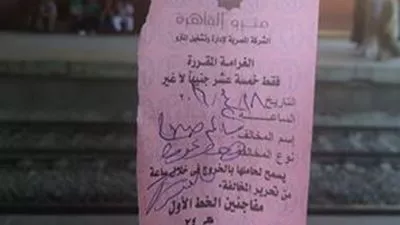 مترو القاهرة
الشركة المصرية لإدارة وتشغيل المترو
الغرامة المقررة
فقط خمسة عشر جنيهاً لا غير
التاريخ
الساعة
إسم المخالف
نوع المخالفة
يسمح لحاملها بالخروج فى خلال ساعة
من تحرير المخالفة
مفاجنين الخط الأول